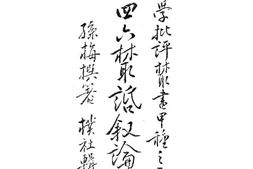 學批評叢書甲種之
四六叢話敘論
孫梅撰著 樸社輯